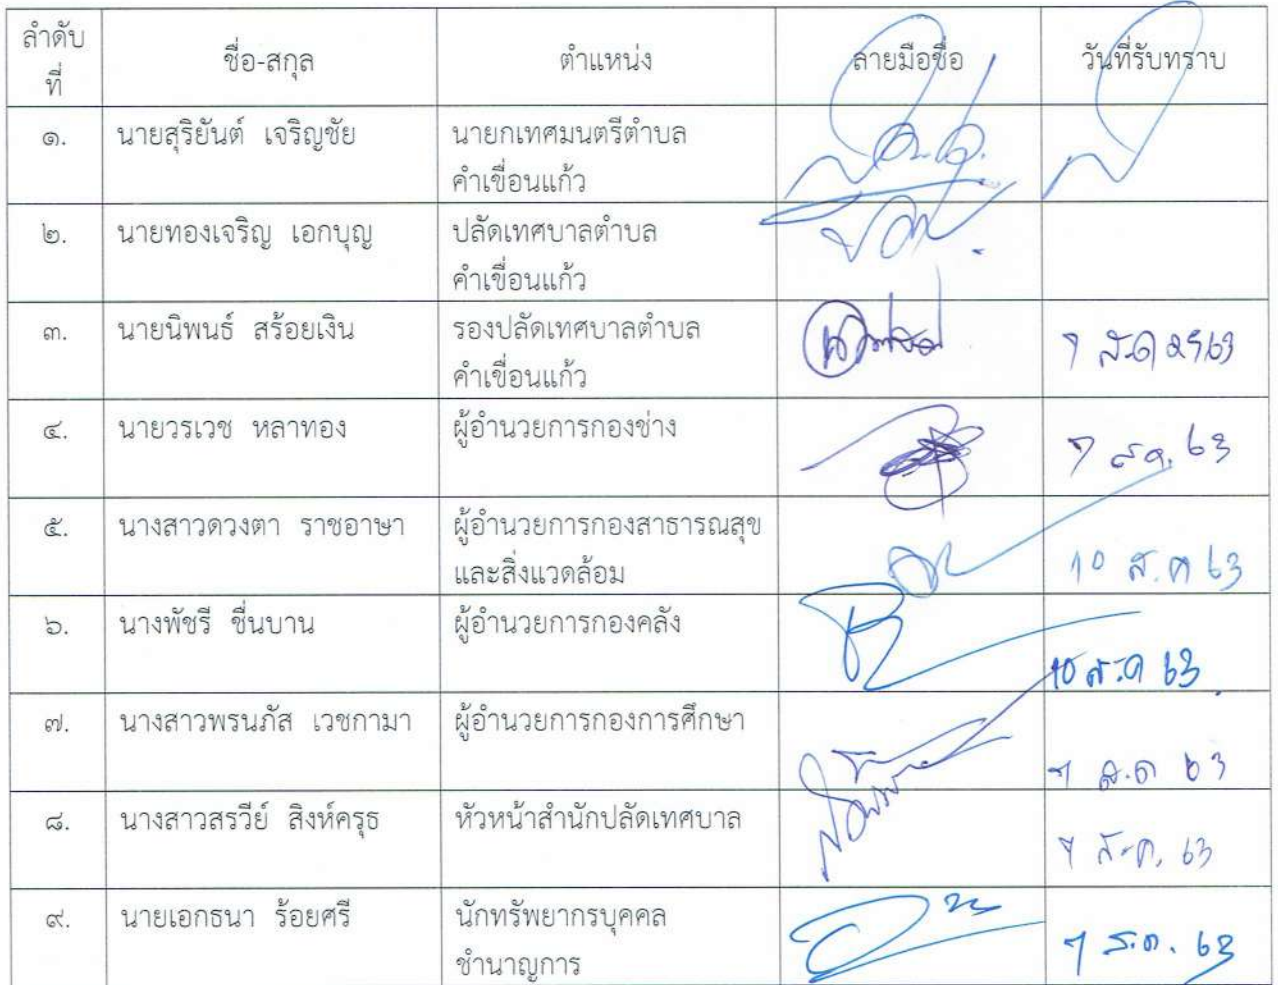 ลำดับ
ที่
ชื่อ-สกุล
ตำแหน่ง
ลายมือชื่อ
วันที่รับทราบ
๑. นายสุริยันต์ เจริญชัย นายกเทศมนตรีตำบล
คำเขื่อนแก้ว
๒. นายทองเจริญ เอกบุญ ปลัดเทศบาลตำบล
คำเขื่อนแก้ว
๓. นายนิพนธ์ สร้อยเงิน รองปลัดเทศบาลตำบล
คำเขื่อนแก้ว
7 ส.ค 2563
๔. นายวรเวช หลาทอง ผู้อำนวยการกองช่าง
7 ส.ค. 63
๕. นางสาวดวงตา ราชอาษา ผู้อำนวยการกองสาธารณสุข
และสิ่งแวดล้อม
10 ส.ค 63
๖. นางพัชรี ชื่นบาน ผู้อำนวยการกองคลัง
10 ส.ค 63
๗. นางสาวพรนภัส เวชกามา ผู้อำนวยการกองการศึกษา
7 ส.ค 63
๘. นางสาวสรวีย์ สิงห์ครุธ หัวหน้าสำนักปลัดเทศบาล
7 ส.ค. 63
๙. นายเอกธนา ร้อยศรี นักทรัพยากรบุคคล
ชำนาญการ
7 ส.ค. 63